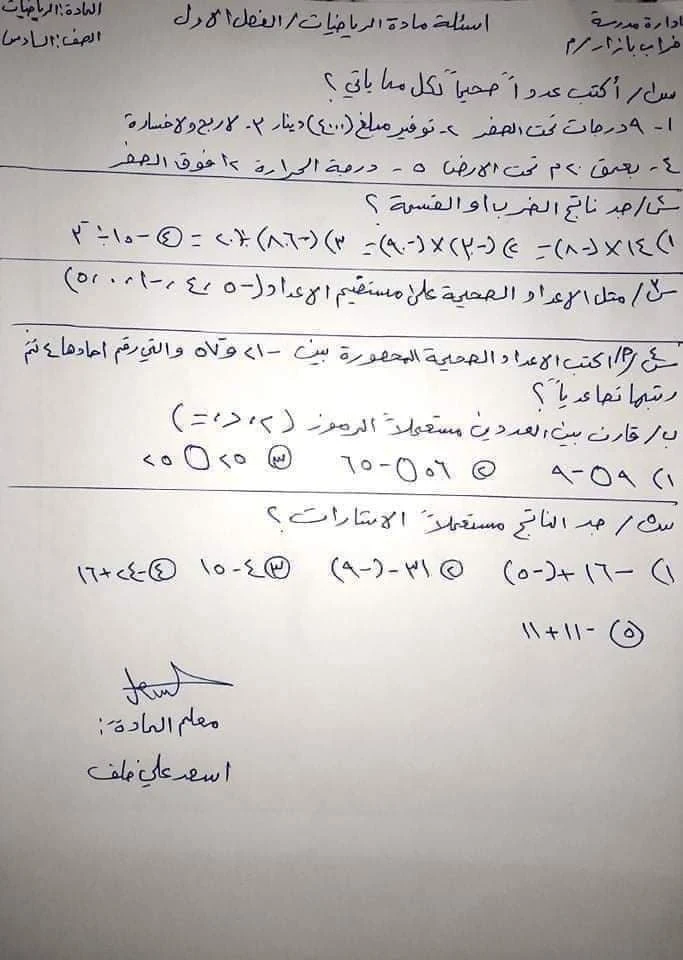 ادارة مدرسة
خراب بازار / م
اسئلة مادة الرياضيات / الفصل الاول
المادة: الرياضيات
الصف: السادس
س١/ أكتب عدداً صحيحاً لكل مما يأتي؟
١- ٩ درجات تحت الصفر ٢- توفير مبلغ (٤٠٠٠) دينار ٣- لا ربح ولا خسارة
٤- بعمق ٢٠م تحت الارض ٥- درجة الحرارة ١٢ فوق الصفر
س٢/ جد ناتج الضرب او القسمة؟
١) ١٤ × (-٨) = ٢) (-٣٠) × (-٩٠) = ٣) (-٨٦٠) ÷ ٢٠ = ٤) -١٥ ÷ ٣
س٣/ مثل الاعداد الصحيحة على مستقيم الاعداد (-٥، ٤، -١، ٠، ٥)
س٤/ أ/ اكتب الاعداد الصحيحة المحصورة بين -٢١ و ٥٧ والتي رقم احادها ٤ ثم
رتبها تصاعدياً؟
ب/ قارن بين العددين مستعملاً الرموز (<، >، =)
١) ٩ ○ -٩ ٢) ٥٦ ○ -٦٥ ٣) ٢٥ ○ ٢٥
س٥/ جد الناتج مستعملاً الاشارات؟
١) -١٦ + (-٥) ٢) ٣١ - (-٩) ٣) ٤ - ١٥ ٤) -٢٤ + ١٦
٥) -١١ + ١١
معلم المادة:
اسعد علي خلف